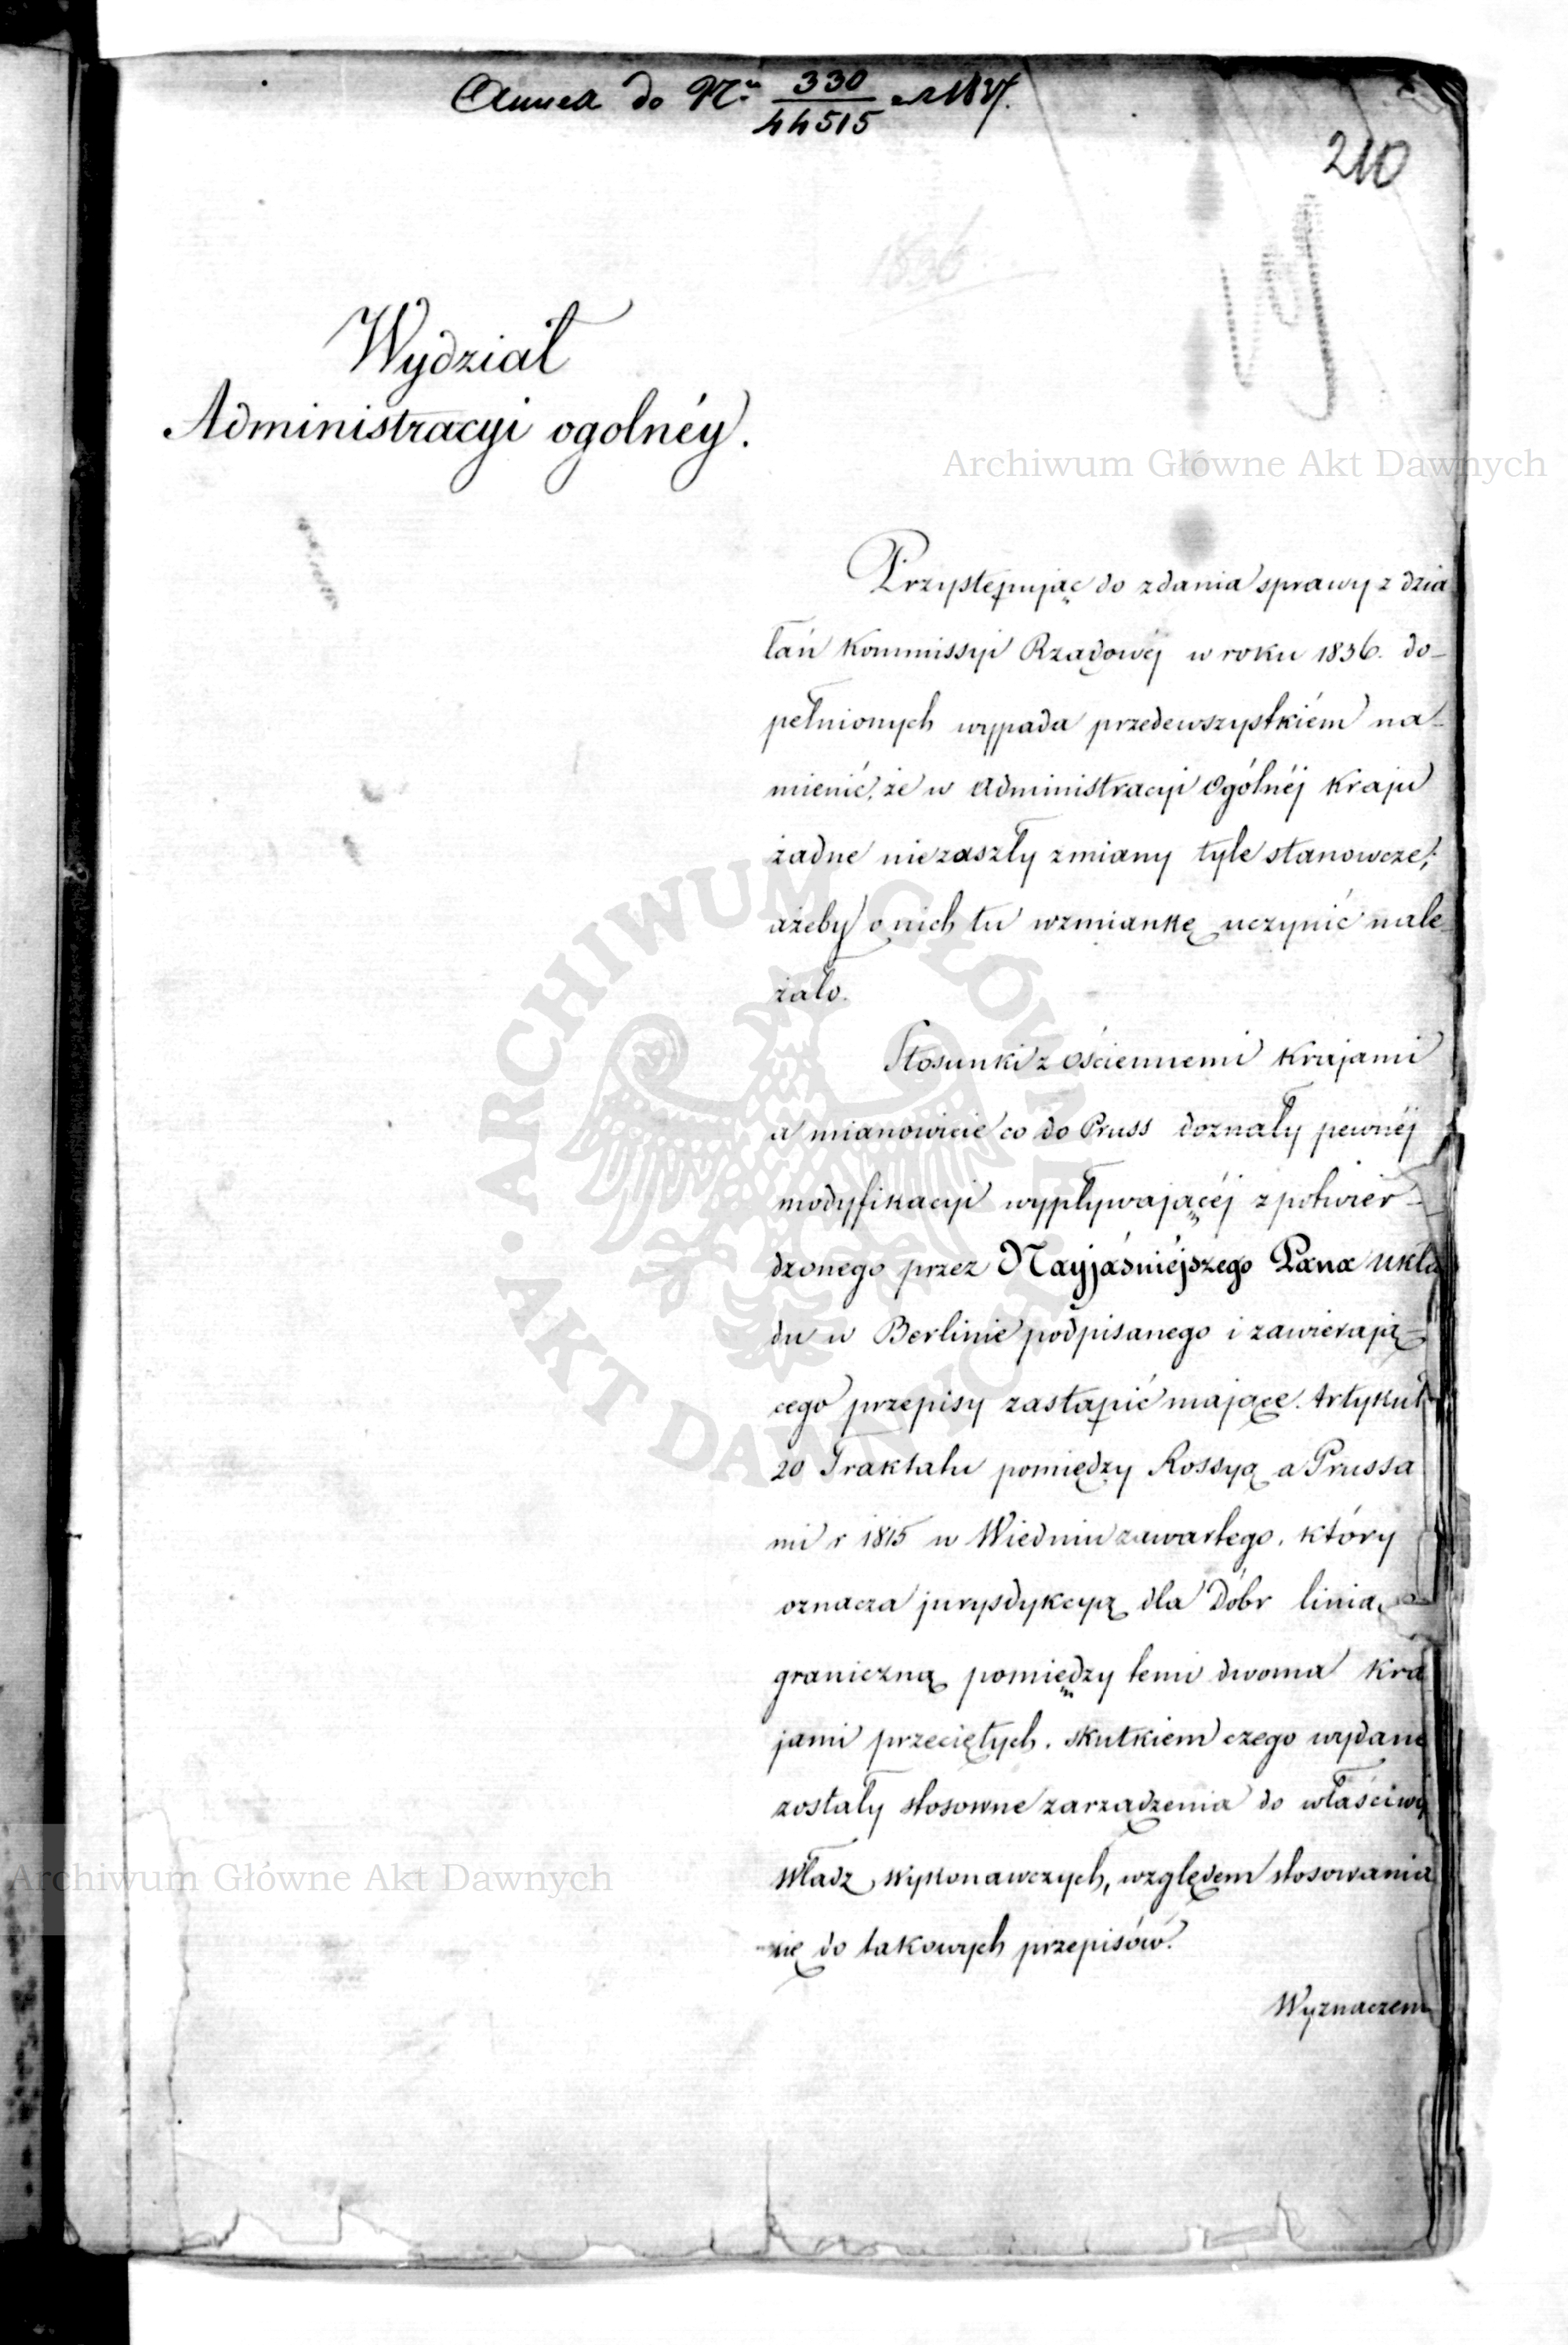 Annex do Nru 330/44515 r 1837.
210
1836
Wydział
Administracyi ogolnéy.
Archiwum Główne Akt Dawnych
Przystępując do zdania sprawy z dzia
łań Kommissyi Rządowéj w roku 1836. do-
pełnionych wypada przedewszystkiém na-
mienić, że w Administracyi Ogólnéj Kraju
żadne niezaszły zmiany tyle stanowcze,
ażeby o nich tu wzmiankę uczynić nale
żało.
Stosunki z ościennemi Krajami
a mianowicie co do Pruss doznały pewnéj
modyfikacyi wypływającéj z potwier-
dzonego przez Nayjaśniéjszego Pana ukła
du w Berlinie podpisanego i zawierają-
cego przepisy zastąpić mające. Artykuł
20 Traktatu pomiędzy Rossyą a Prussa
mi r 1815 w Wiedniu zawartego, który
oznacza jurysdykcyą dla Dóbr linią
graniczną pomiędzy temi dwoma Kra
jami przeciętych, skutkiem czego wydane
zostały stosowne zarządzenia do właściwy
Władz Wykonawczych, względem stosowania
się do takowych przepisów.
Wyznaczeni
Archiwum Główne Akt Dawnych
ARCHIWUM GŁÓWNE AKT DAWNYCH